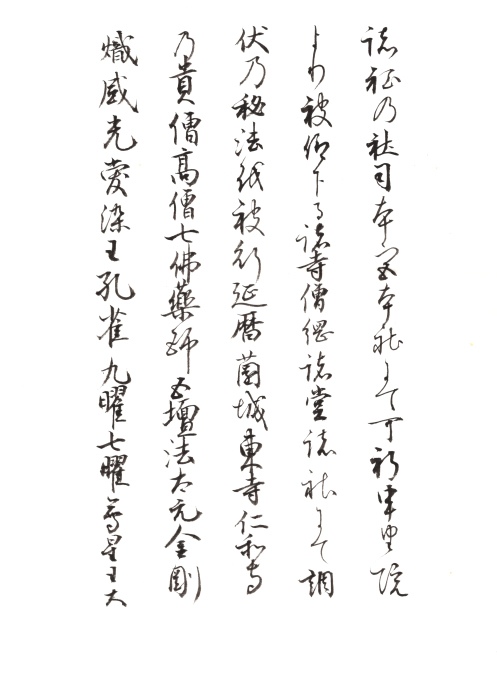 諸社乃社司本宮本社よて可祈申由院
より被仰下る諸寺僧綱諸堂諸社よて調
伏乃秘法越被行延暦薗城東寺仁和寺
乃貴僧高僧七佛藥師五壇法太元金剛
熾盛光愛染王孔雀九曜七曜尊星王大